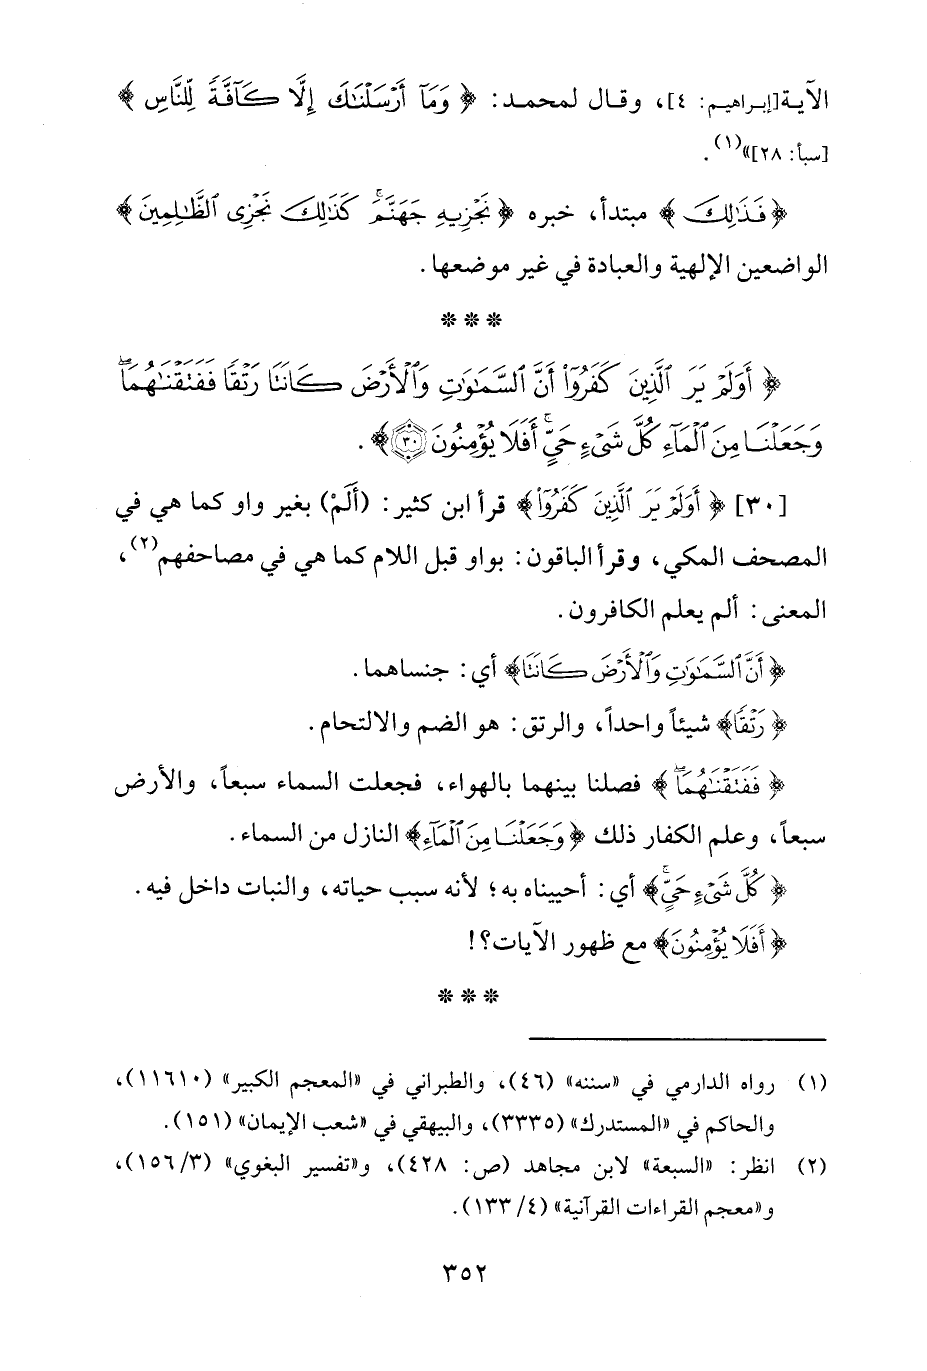 الآية[إبراهيم: ٤]، وقال لمحمد: ﴿ وَمَآ أَرْسَلْنَٰكَ إِلَّا كَآفَّةً لِّلنَّاسِ ﴾
[سبأ: ٢٨]»(١).
﴿ فَذَٰلِكَ ﴾ مبتدأ، خبره ﴿ نَجْزِيهِ جَهَنَّمَ ۚ كَذَٰلِكَ نَجْزِى ٱلظَّٰلِمِينَ ﴾
الواضعين الإلهية والعبادة في غير موضعها.
* * *
﴿ أَوَلَمْ يَرَ ٱلَّذِينَ كَفَرُوٓا۟ أَنَّ ٱلسَّمَٰوَٰتِ وَٱلْأَرْضَ كَانَتَا رَتْقًا فَفَتَقْنَٰهُمَا ۖ
وَجَعَلْنَا مِنَ ٱلْمَآءِ كُلَّ شَىْءٍ حَىٍّ ۚ أَفَلَا يُؤْمِنُونَ ٣٠ ﴾.
[٣٠] ﴿ أَوَلَمْ يَرَ ٱلَّذِينَ كَفَرُوٓا۟ ﴾ قرأ ابن كثير: (أَلَمْ) بغير واو كما هي في
المصحف المكي، وقرأ الباقون: بواو قبل اللام كما هي في مصاحفهم(٢)،
المعنى: ألم يعلم الكافرون.
﴿ أَنَّ ٱلسَّمَٰوَٰتِ وَٱلْأَرْضَ كَانَتَا ﴾ أي: جنساهما.
﴿ رَتْقًا ﴾ شيئاً واحداً، والرتق: هو الضم والالتحام.
﴿ فَفَتَقْنَٰهُمَا ۖ ﴾ فصلنا بينهما بالهواء، فجعلت السماء سبعاً، والأرض
سبعاً، وعلم الكفار ذلك ﴿ وَجَعَلْنَا مِنَ ٱلْمَآءِ ﴾ النازل من السماء.
﴿ كُلَّ شَىْءٍ حَىٍّ ۚ ﴾ أي: أحييناه به؛ لأنه سبب حياته، والنبات داخل فيه.
﴿ أَفَلَا يُؤْمِنُونَ ﴾ مع ظهور الآيات؟!
* * *
(١) رواه الدارمي في «سننه» (٤٦)، والطبراني في «المعجم الكبير» (١١٦١٠)،
والحاكم في «المستدرك» (٣٣٣٥)، والبيهقي في «شعب الإيمان» (١٥١).
(٢) انظر: «السبعة» لابن مجاهد (ص: ٤٢٨)، و«تفسير البغوي» (٣/ ١٥٦)،
و«معجم القراءات القرآنية» (٤/ ١٣٣).
٣٥٢